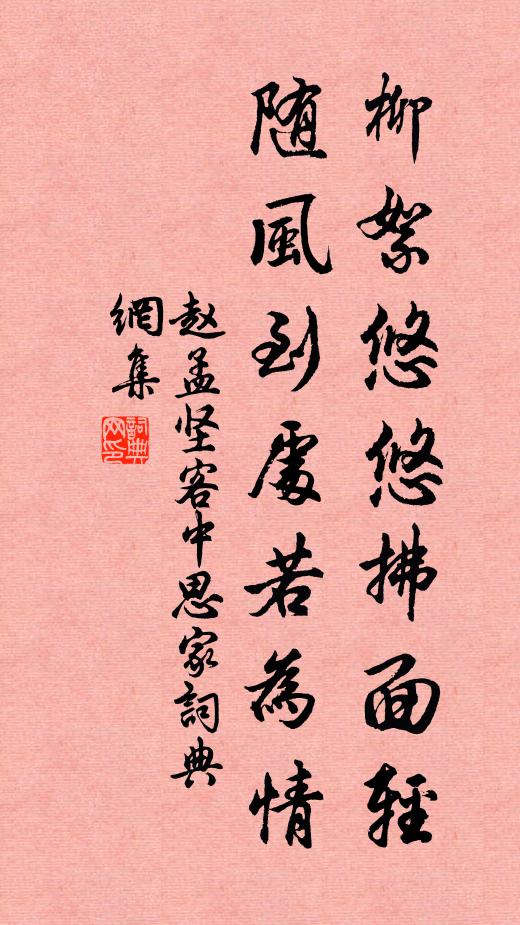 柳絮悠悠拂面輕
随風到處若為情
赵孟坚客中思家詞典
網集
詞典網印